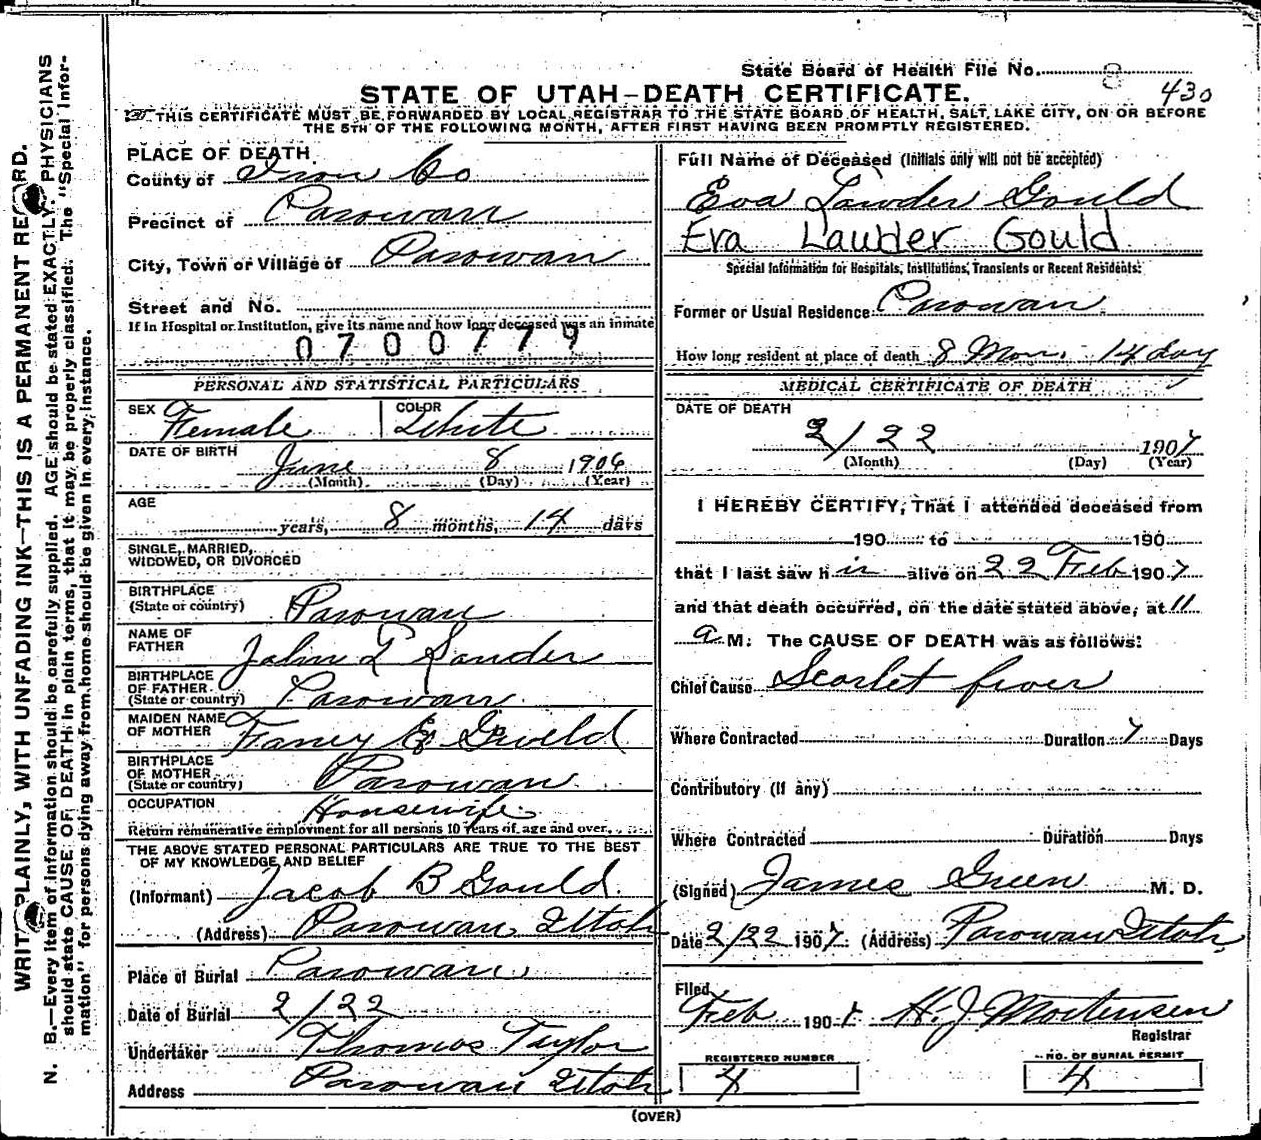 State Board of Health File No. 8
430
STATE OF UTAH-DEATH CERTIFICATE.
THIS CERTIFICATE MUST BE FORWARDED BY LOCAL REGISTRAR TO THE STATE BOARD OF HEALTH, SALT LAKE CITY, ON OR BEFORE
THE 5TH OF THE FOLLOWING MONTH, AFTER FIRST HAVING BEEN PROMPTLY REGISTERED.
PLACE OF DEATH.
County of Iron Co
Precinct of Parowan
City, Town or Village of Parowan
Street and No.
If in Hospital or Institution, give its name and how long deceased was an inmate
0700779
PERSONAL AND STATISTICAL PARTICULARS
SEX Female COLOR White
DATE OF BIRTH June 8 1906
(Month) (Day) (Year)
AGE
years, 8 months, 14 days
SINGLE, MARRIED,
WIDOWED, OR DIVORCED
BIRTHPLACE
(State or country) Parowan
NAME OF
FATHER John L Lauder
BIRTHPLACE
OF FATHER
(State or country) Parowan
MAIDEN NAME
OF MOTHER Faney E Gould
BIRTHPLACE
OF MOTHER
(State or country) Parowan
OCCUPATION Housewife
Return remunerative employment for all persons 10 years of age and over.
THE ABOVE STATED PERSONAL PARTICULARS ARE TRUE TO THE BEST
OF MY KNOWLEDGE AND BELIEF
(Informant) Jacob B Gould
(Address) Parowan Utah
Place of Burial Parowan
Date of Burial 2/22
Undertaker Thomas Taylor
Address Parowan Utah
Full Name of Deceased (Initials only will not be accepted)
Eva Lawder Gould
Eva Lawder Gould
Special Information for Hospitals, Institutions, Transients or Recent Residents:
Former or Usual Residence Parowan
How long resident at place of death 8 Mon. 14 day
MEDICAL CERTIFICATE OF DEATH
DATE OF DEATH
2/22 1907
(Month) (Day) (Year)
I HEREBY CERTIFY, That I attended deceased from
190 to 190
that I last saw h im alive on 22 Feb 1907
and that death occurred, on the date stated above, at 11
a M. The CAUSE OF DEATH was as follows:
Chief Cause Scarlet fever
Where Contracted Duration 7 Days
Contributory (If any)
Where Contracted Duration Days
(Signed) James Green M. D.
Date 2/22 1907. (Address) Parowan Utah
Filed
Feb 190 H. J Mortensen
Registrar
REGISTERED NUMBER
4
NO. OF BURIAL PERMIT
4
(OVER)
WRITE PLAINLY, WITH UNFADING INK—THIS IS A PERMANENT RECORD.
N. B.—Every item of information should be carefully supplied. AGE should be stated EXACTLY. PHYSICIANS
should state CAUSE OF DEATH in plain terms, that it may be properly classified. The "Special Infor-
mation" for persons dying away from home should be given in every instance.